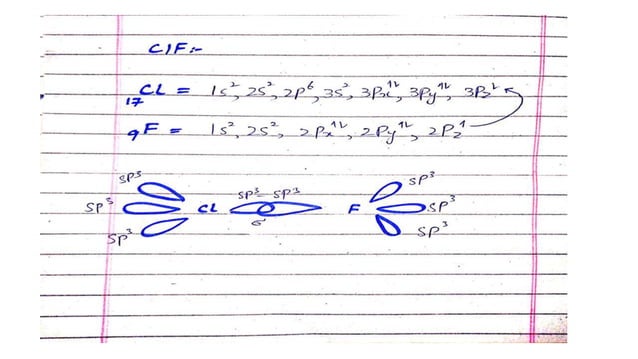 ClF:-
₁₇CL = 1s², 2s², 2p⁶, 3s², 3Px¹⇂, 3Py¹⇂, 3Pz¹
₉F = 1s², 2s², 2Px¹⇂, 2Py¹⇂, 2Pz¹
SP³ SP³-SP³ SP³
SP³ CL F SP³
SP³ σ SP³